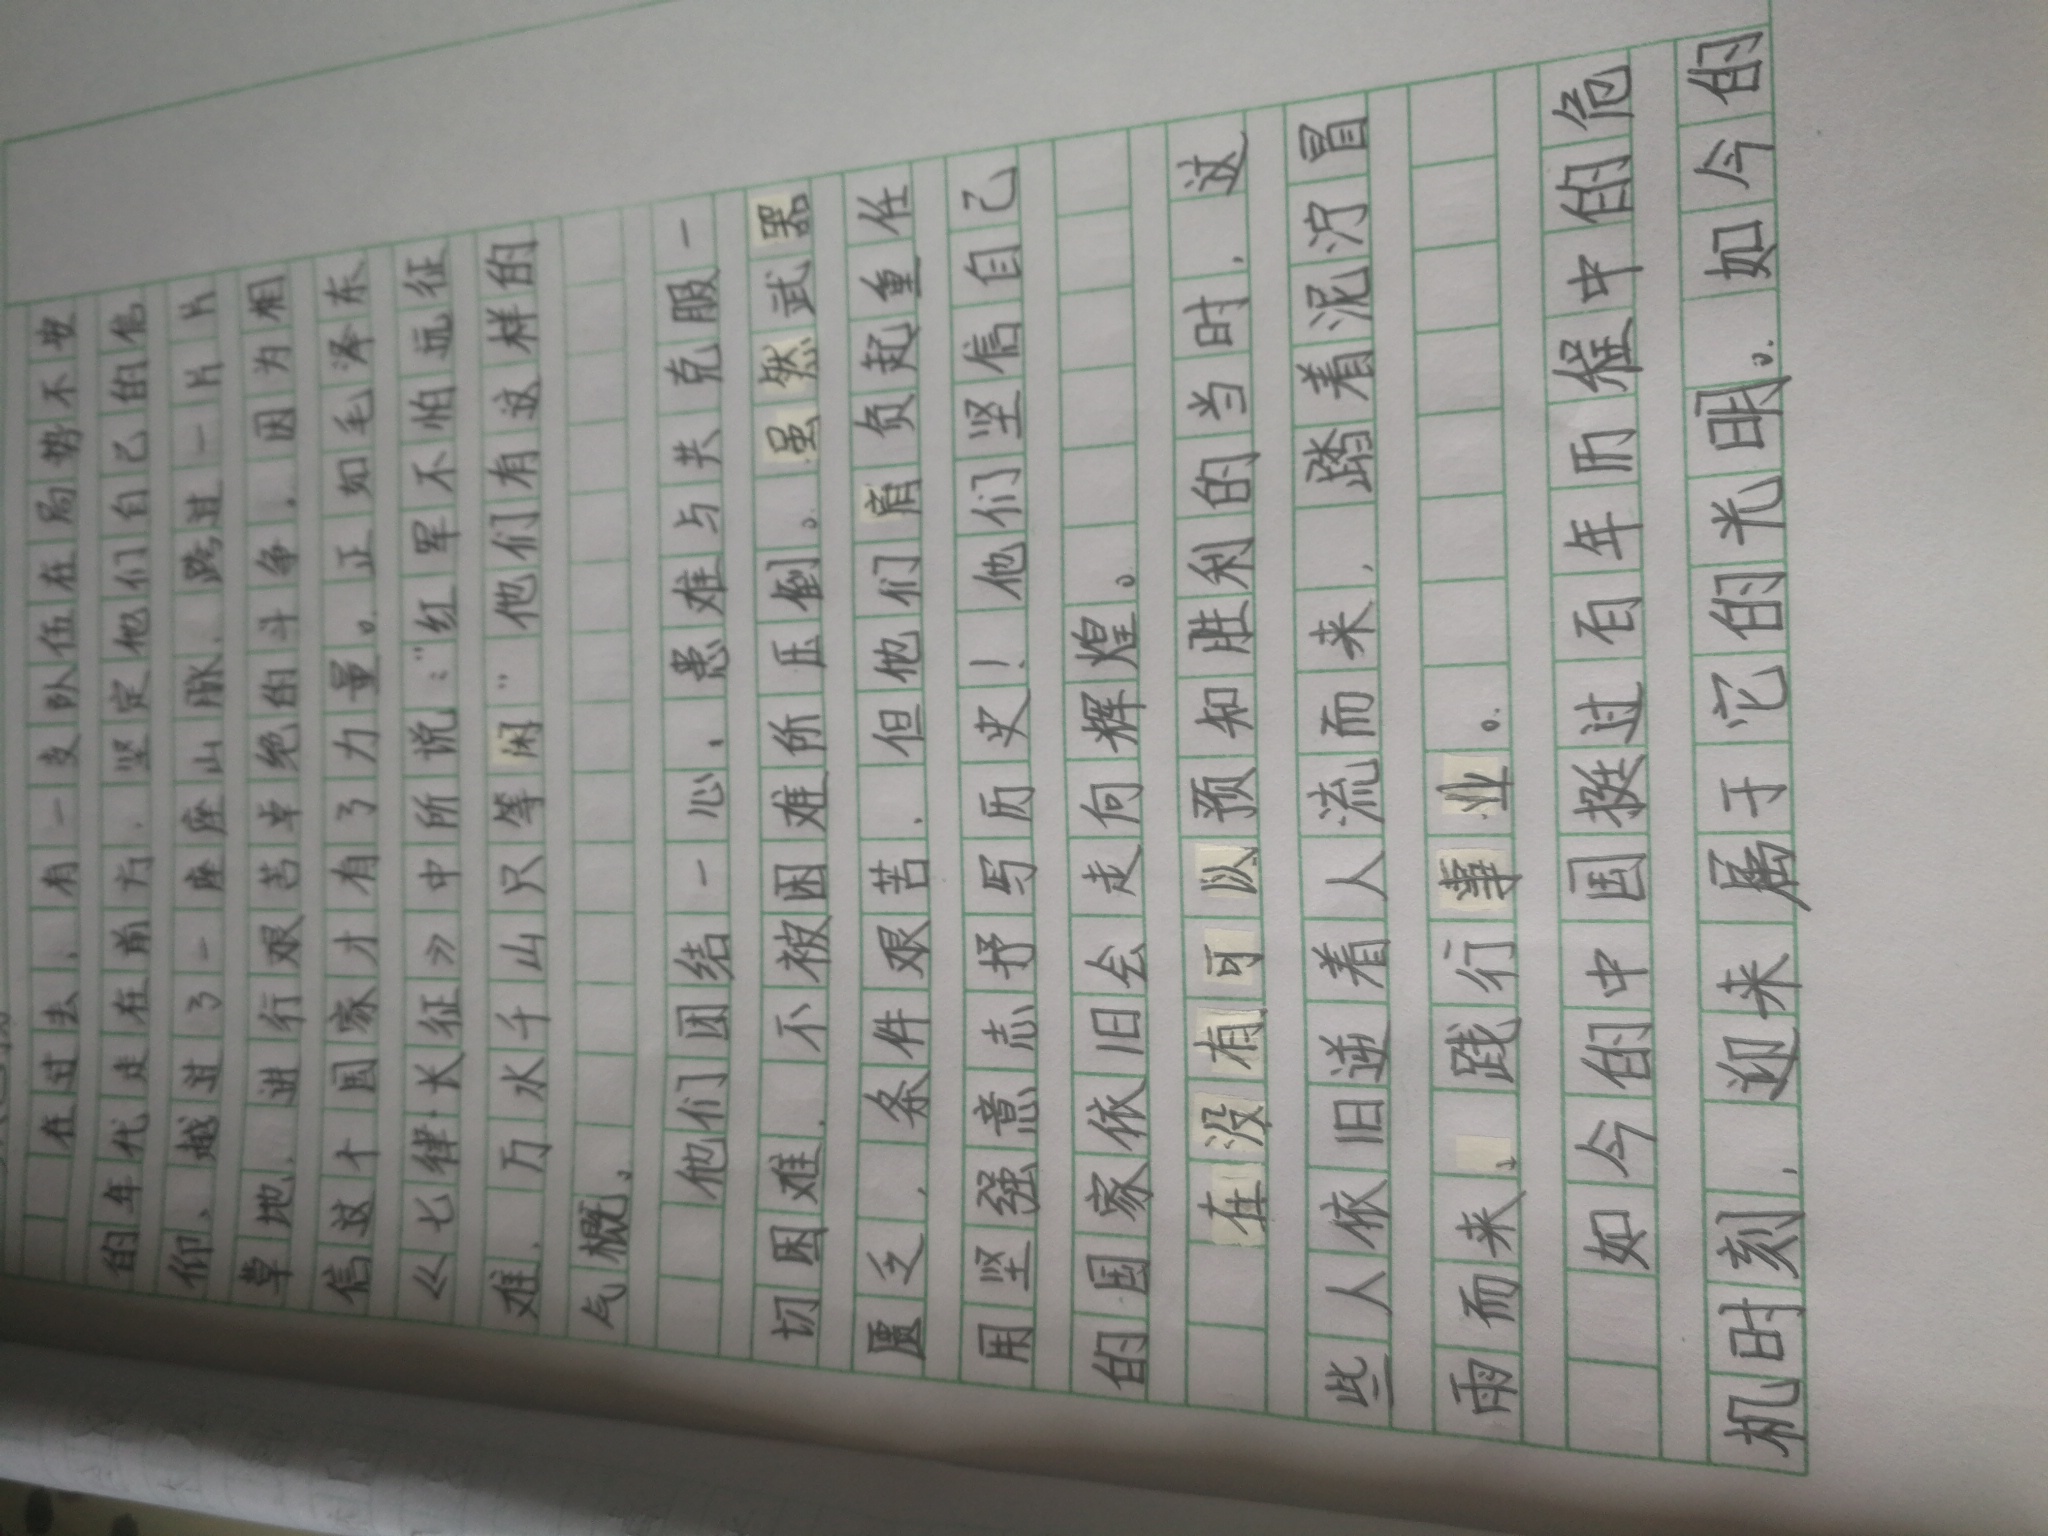 在过去，有一支队伍在局势不安
的年代走在前方，坚定他们自己的信
仰、越过了一座座山脉、跨过一片片
草地，进行艰苦卓绝的斗争，因为相
信这个国家才有了力量。正如毛泽东
《七律·长征》中所说：“红军不怕远征
难，万水千山只等闲”他们有这样的
气概。
他们团结一心，患难与共克服一
切困难，不被困难所压倒。虽然武器
匮乏，条件艰苦，但他们肩负起重任
用坚强意志抒写历史！他们坚信自己
的国家依旧会走向辉煌。
在没有可以预知胜利的当时，这
些人依旧逆着人流而来，踏着泥泞冒
雨而来、践行事业。
如今的中国挺过百年历程中的危
机时刻，迎来属于它的光明。如今的